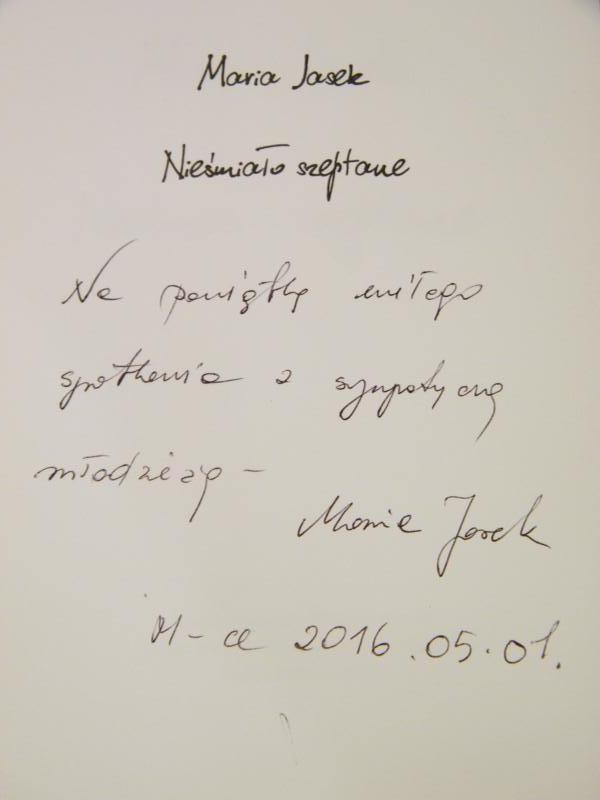 Maria Jasek
Nieśmiało szeptane
Na pamiątkę miłego
spotkania z sympatyczną
młodzieżą –
Maria Jasek
M-ca 2016.05.01.